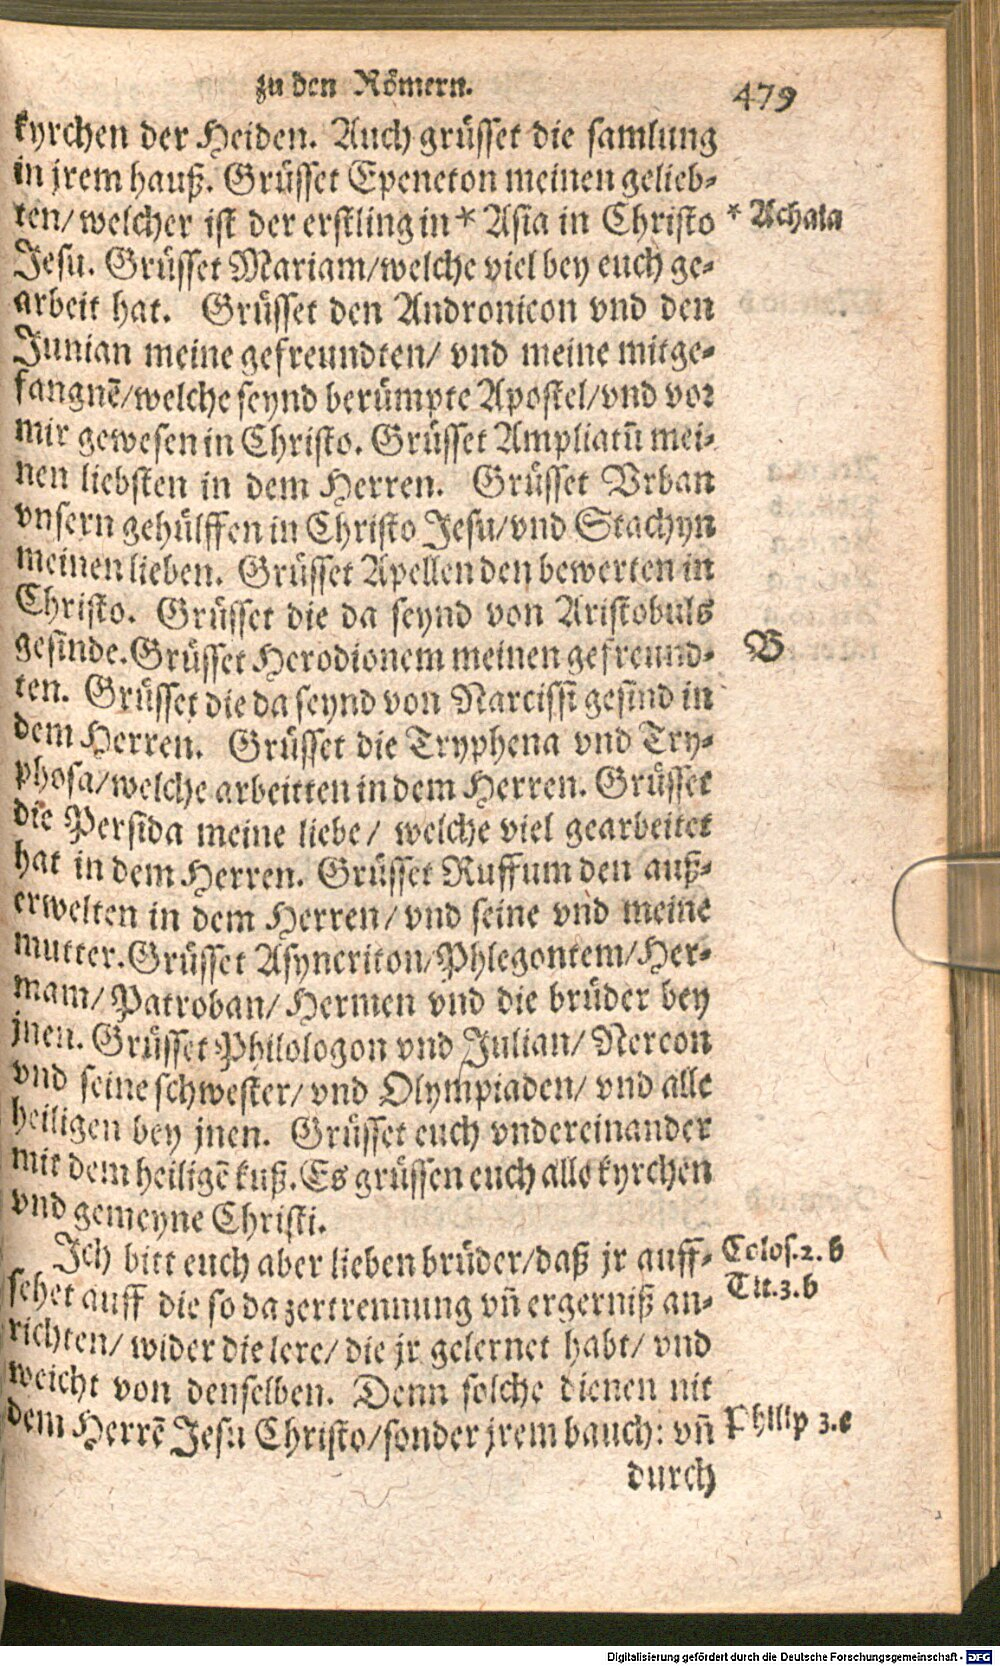 zu den Römern.
479
kyrchen der Heiden. Auch grüsset die samlung
in jrem hauß. Grüsset Epeneton meinen gelieb-
ten/ welcher ist der erstling in * Asia in Christo
* Achaia
Jesu. Grüsset Mariam/welche viel bey euch ge-
arbeit hat. Grüsset den Andronicon vnd den
Junian meine gefreundten/ vnd meine mitge-
fangnē/welche seynd berümpte Apostel/vnd vor
mir gewesen in Christo. Grüsset Ampliatū mei-
nen liebsten in dem Herren. Grüsset Vrban
vnsern gehülffen in Christo Jesu/vnd Stachyn
meinen lieben. Grüsset Apellen den bewerten in
Christo. Grüsset die da seynd von Aristobuls
gesinde. Grüsset Herodionem meinen gefreund-
B
ten. Grüsset die da seynd von Narcissi gesind in
dem Herren. Grüsset die Tryphena vnd Try-
phosa/welche arbeitten in dem Herren. Grüsset
die Persida meine liebe/ welche viel gearbeitet
hat in dem Herren. Grüsset Ruffum den auß-
erwelten in dem Herren/ vnd seine vnd meine
mutter. Grüsset Asyncriton/Phlegontem/Her-
mam/ Patroban/ Hermen vnd die brüder bey
jnen. Grüsset Philologon vnd Julian/ Nereon
vnd seine schwester/ vnd Olympiaden/ vnd alle
heiligen bey jnen. Grüsset euch vndereinander
mit dem heiligē kuß. Es grüssen euch alle kyrchen
vnd gemeyne Christi.
Ich bitt euch aber lieben brüder/daß jr auff-
Colos. 2. b
sehet auff die so da zertrennung vn̄ ergerniß an-
Tit. 3. b
richten/ wider die lere/ die jr gelernet habt/ vnd
weicht von denselben. Denn solche dienen nit
dem Herrē Jesu Christo/sonder jrem bauch: vn̄
Philip 3. e
durch
Digitalisierung gefördert durch die Deutsche Forschungsgemeinschaft - DFG